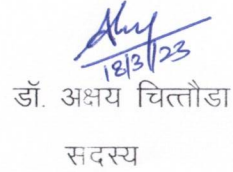 18/3/23
डॉ. अक्षय चित्तौडा
सदस्य